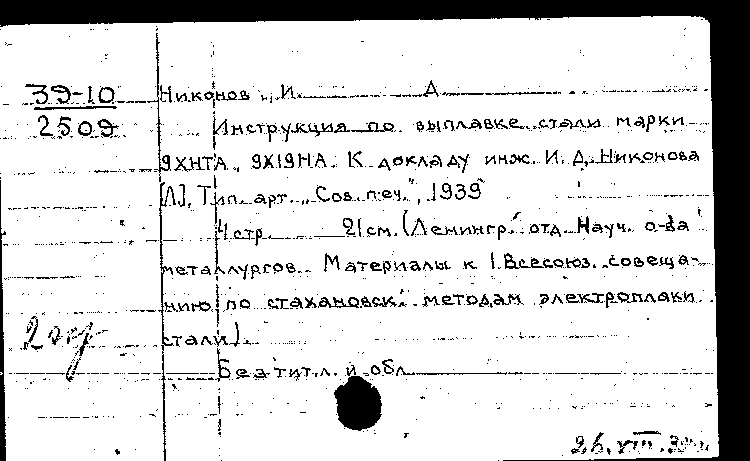 39-10
2509
Никонов, И. Д.
Инструкция по выплавке стали марки
9ХНТА, 9Х19НА. К докладу инж. И. Д. Никонова
[Л], Тип. арт. "Сов. печ.", 1939
4 стр. 21 см. (Ленингр. отд. Науч. о-ва
металлургов. Материалы к I Всесоюз. совеща-
нию по стахановск. методам электроплавки
стали).
Без тит. л. и обл.
2 экз
26.VIII.39 г.